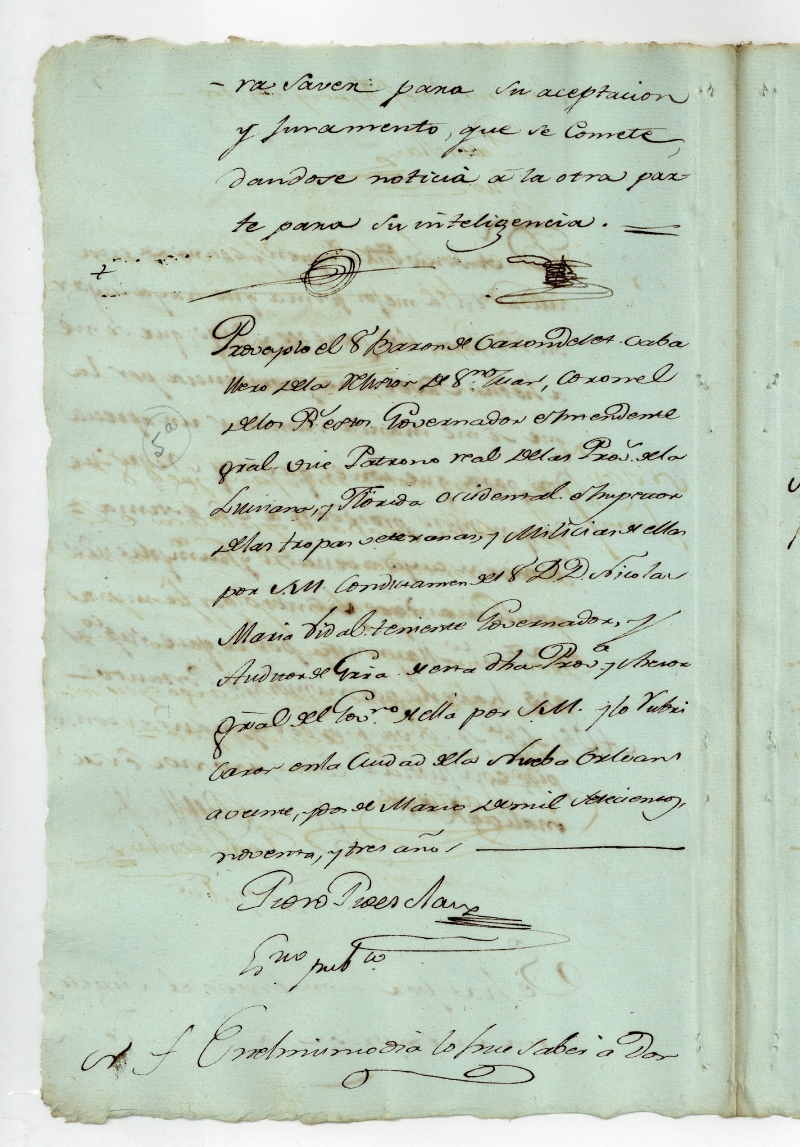 -ra saven para su aceptacion
y Juramento, que se Comete,
dandose noticia à la otra par-
te para su inteligencia.
Proveyolo el Sr Baron de Carondelet Caba
llero de la Religion de Sn Juan, Coronel
de los Rs extos Governador e Yntendente
gral vice Patrono real de las Provs de la
Luisiana, y Florida Occidental e Ynspector
de las tropas veteranas, y Milicias de ellas
por S.M. Con dictamen del Sr D. D. Nicolas
Maria Vidal teniente Governador, y
Auditor de Grra de esta dha Prova y Asesor
gral del Govno de ella por S.M. y lo Rubri
caron en la Ciudad de la Nueba Orleans
a veinte, y dos de Marzo de mil setecientos,
noventa, y tres años
5a
Pedro Pedesclaux
Esno pubco
En el mismo dia lo hise saber a Don